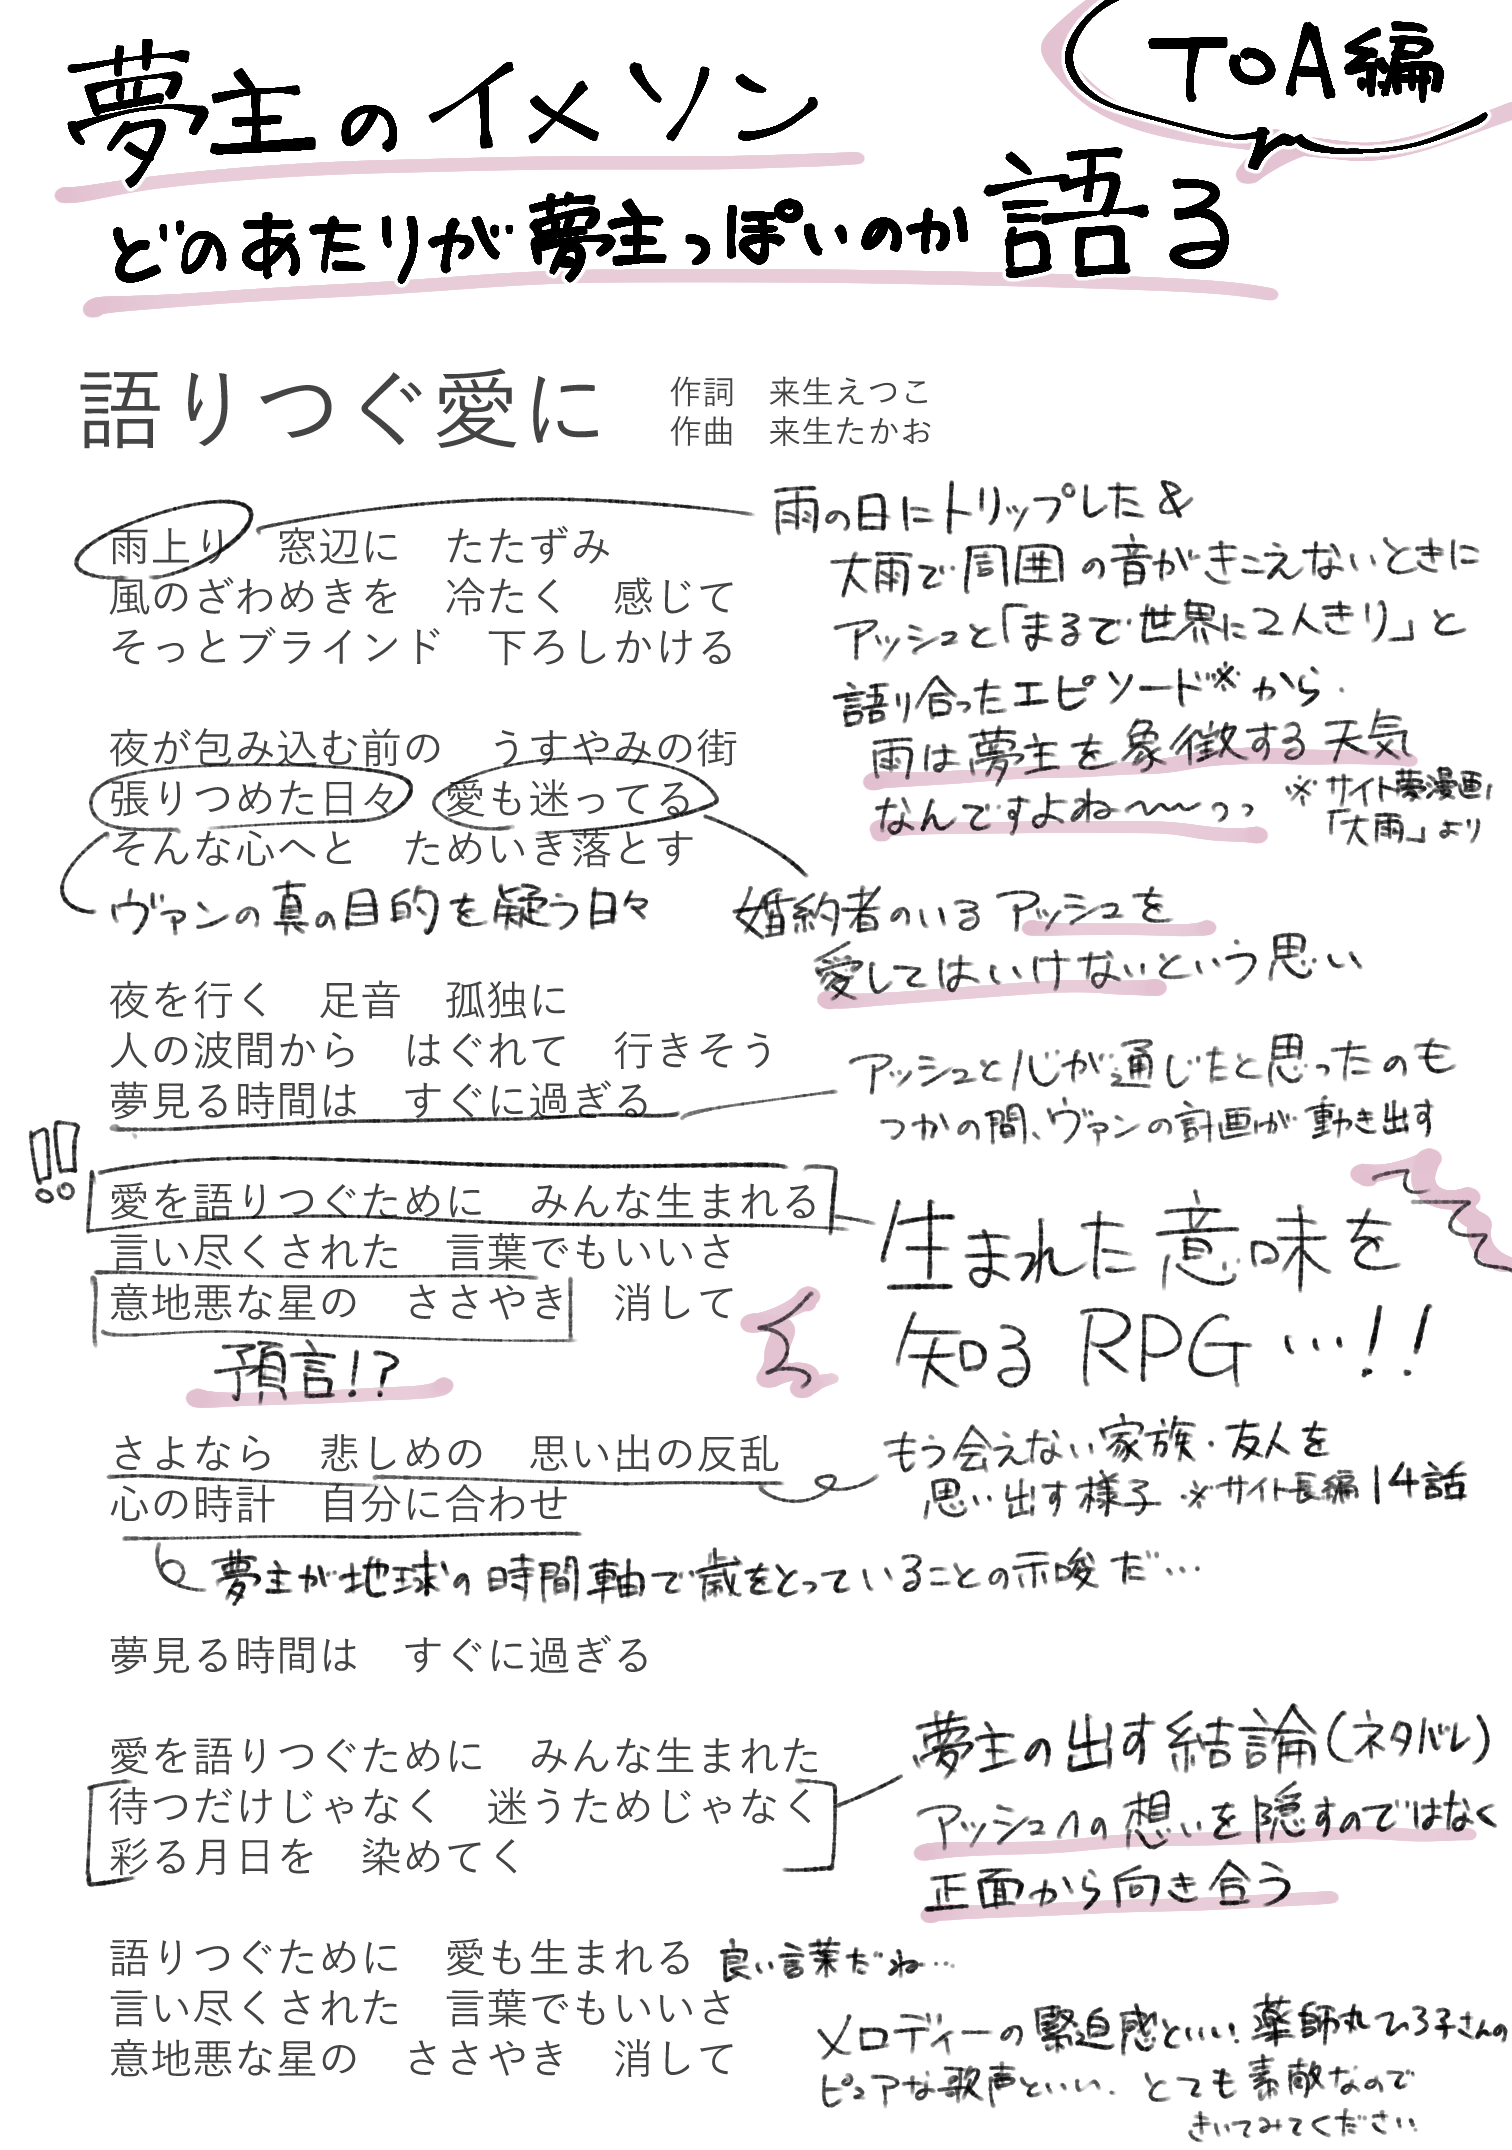 TOA編
夢主のイメソン
どのあたりが夢主っぽいのか語る
語りつぐ愛に
作詞　来生えつこ
作曲　来生たかお
雨上り　窓辺に　たたずみ
風のざわめきを　冷たく　感じて
そっとブラインド　下ろしかける
雨の日にトリップした&
大雨で周囲の音がきこえないときに
アッシュと「まるで世界に2人きり」と
語り合ったエピソード※から.
雨は夢主を象徴する天気
なんですよね〜〜っっ
※サイト夢漫画
「大雨」より
夜が包み込む前の　うすやみの街
張りつめた日々　愛も迷ってる
そんな心へと　ためいき落とす
ヴァンの真の目的を疑う日々
婚約者のいるアッシュを
愛してはいけないという思い
夜を行く　足音　孤独に
人の波間から　はぐれて　行きそう
夢見る時間は　すぐに過ぎる
アッシュと心が通じたと思ったのも
つかの間、ヴァンの計画が動き出す
!!
愛を語りつぐために　みんな生まれる
言い尽くされた　言葉でもいいさ
意地悪な星の　ささやき　消して
預言!?
生まれた意味を
知るRPG…!!
さよなら　悲しめの　思い出の反乱
心の時計　自分に合わせ
もう会えない家族・友人を
思い出す様子 ※サイト長編14話
夢主が地球の時間軸で歳をとっていることの示唆だ…
夢見る時間は　すぐに過ぎる
愛を語りつぐために　みんな生まれた
待つだけじゃなく　迷うためじゃなく
彩る月日を　染めてく
夢主の出す結論(ネタバレ)
アッシュへの想いを隠すのではなく
正面から向き合う
語りつぐために　愛も生まれる
良い言葉だね…
言い尽くされた　言葉でもいいさ
意地悪な星の　ささやき　消して
メロディーの緊迫感といい、薬師丸ひろ子さんの
ピュアな歌声といい、とても素敵なので
きいてみてください